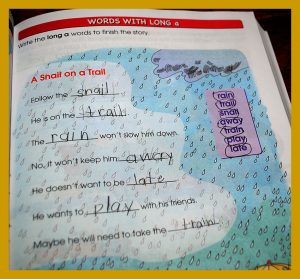 WORDS WITH LONG a
Write the long a words to finish the story.
A Snail on a Trail
Follow the snail.
He is on the trail.
The rain won't slow him down.
No, it won't keep him away.
He doesn't want to be late.
He wants to play with his friends.
Maybe he will need to take the train.
rain
trail
snail
away
train
play
late